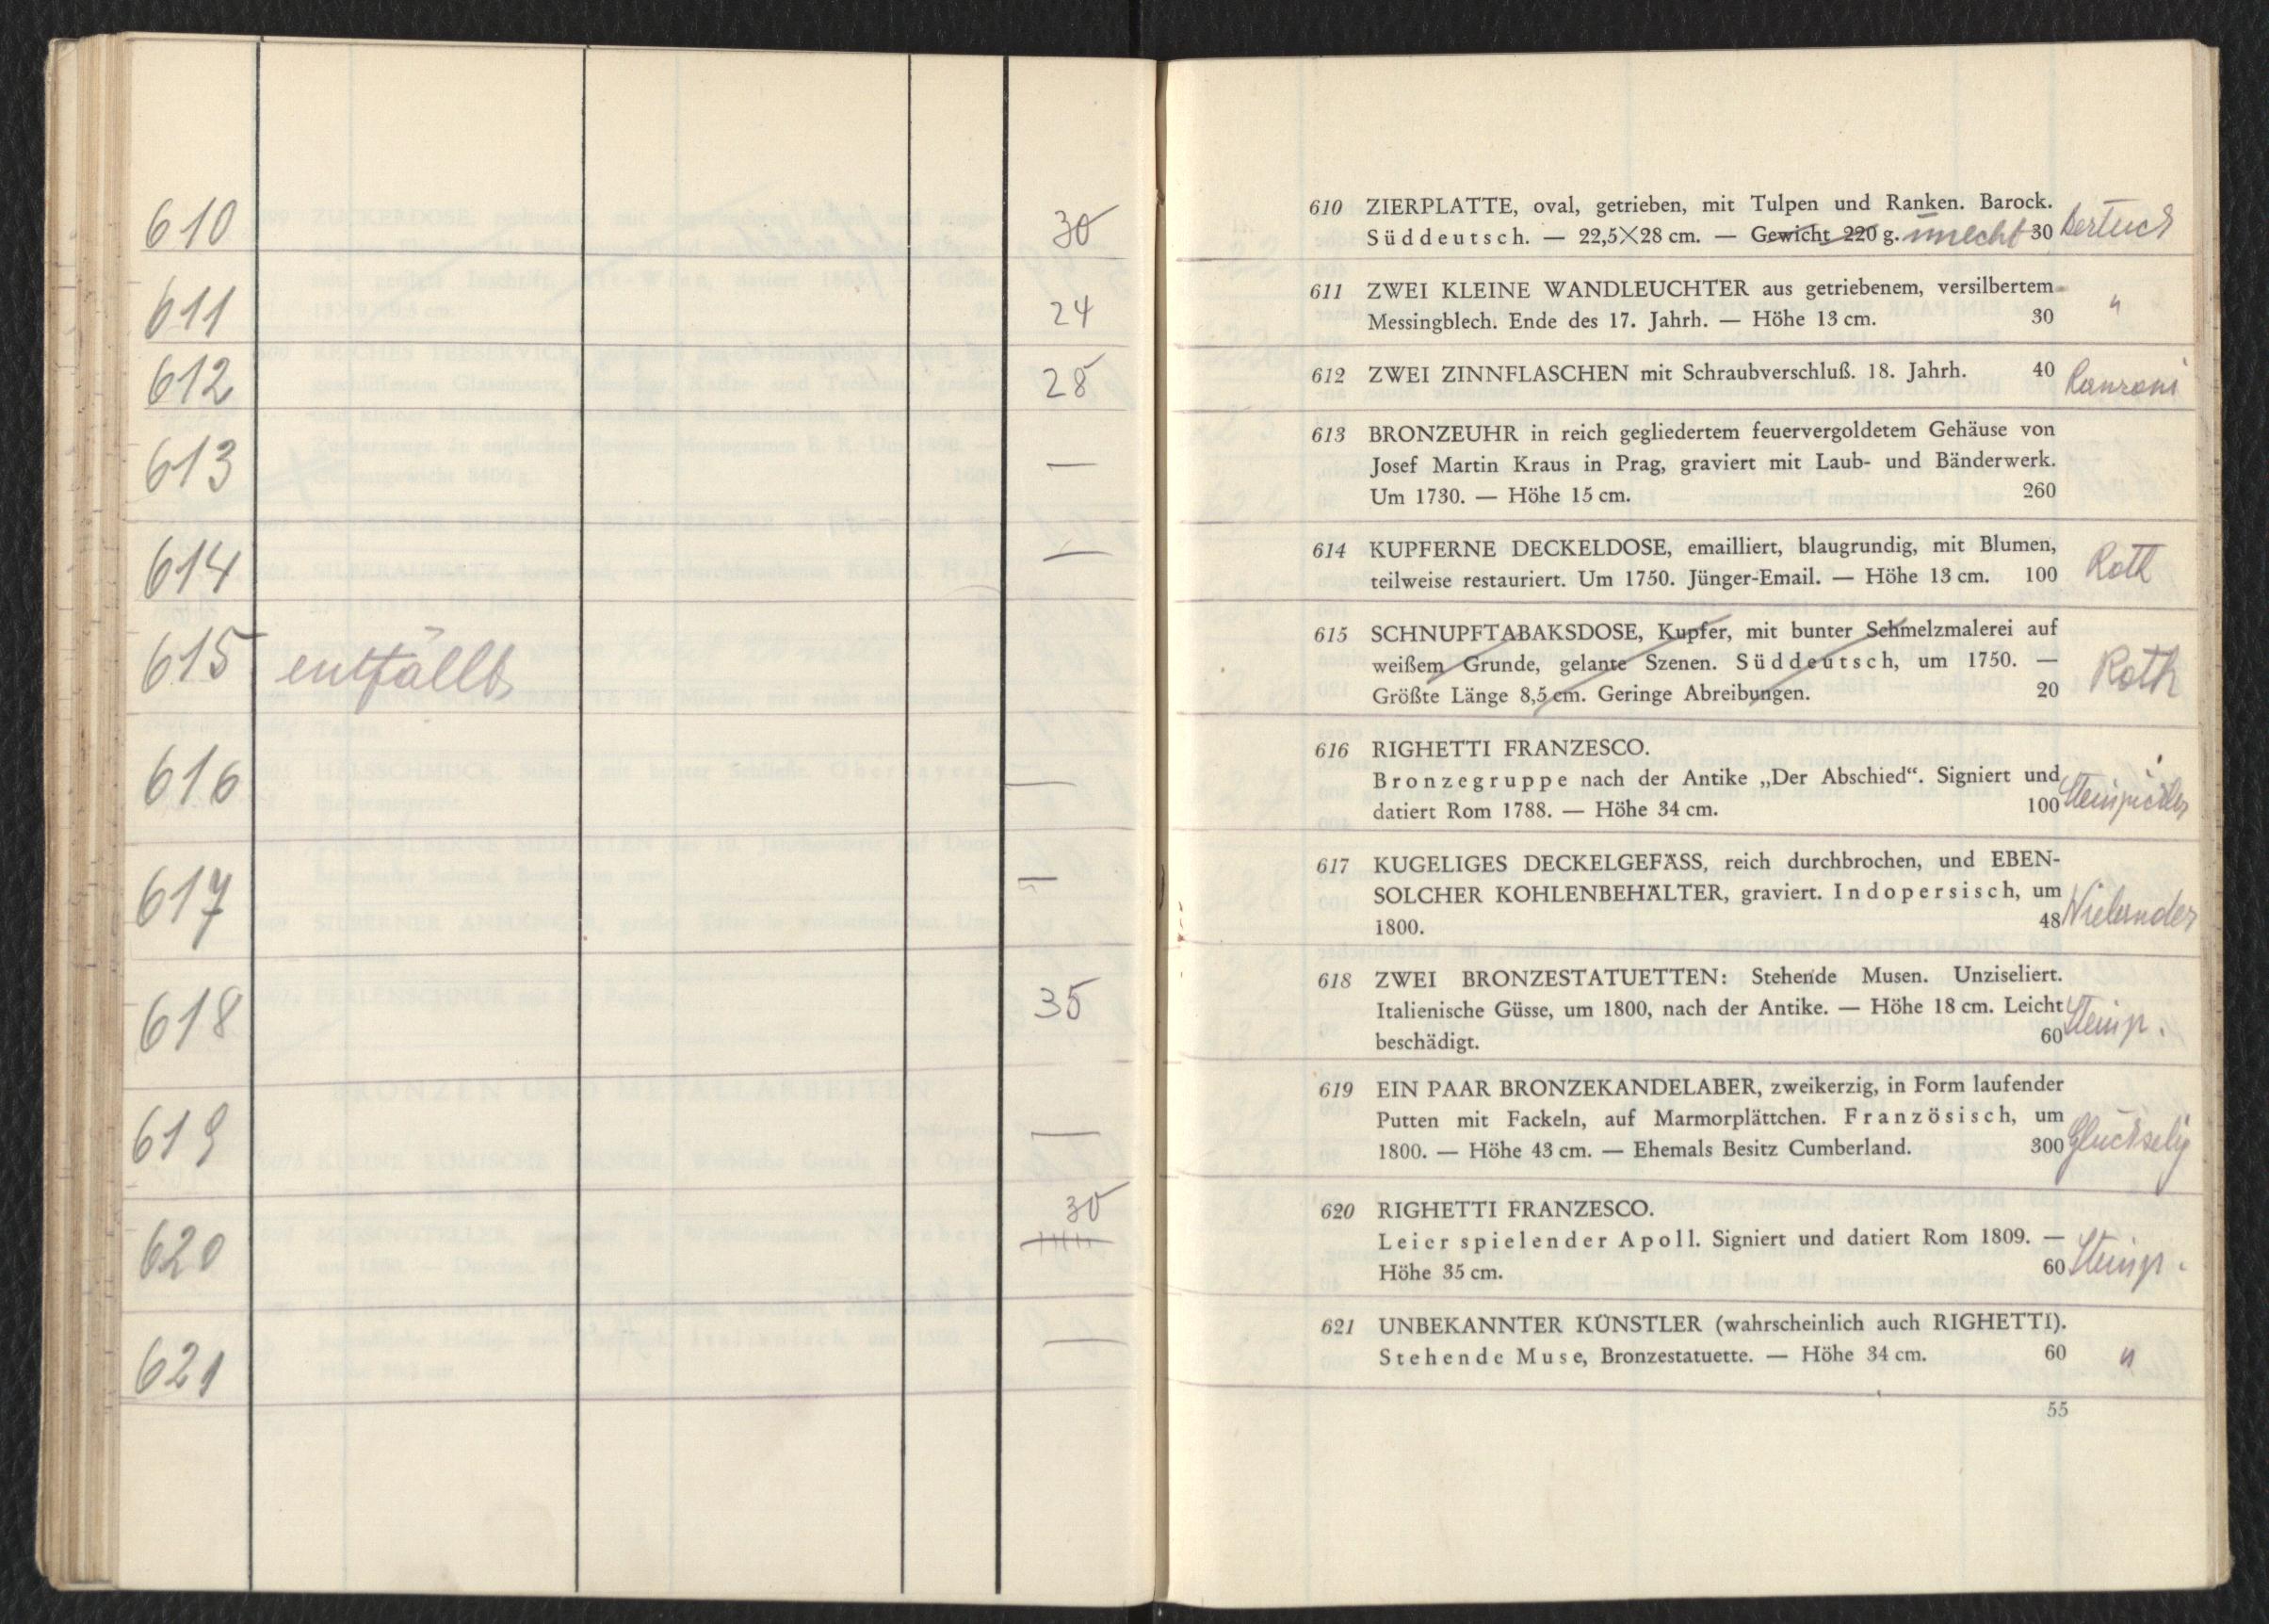 610
30
611
24
612
28
613
—
614
—
615 entfällt
616
—
617
—
618
35
619
—
30
620
621
—
610 ZIERPLATTE, oval, getrieben, mit Tulpen und Ranken. Barock.
Süddeutsch. — 22,5×28 cm. — Gewicht 220 g. unecht 30
611 ZWEI KLEINE WANDLEUCHTER aus getriebenem, versilbertem
Messingblech. Ende des 17. Jahrh. — Höhe 13 cm. 30 "
612 ZWEI ZINNFLASCHEN mit Schraubverschluß. 18. Jahrh. 40 Ranzoni
613 BRONZEUHR in reich gegliedertem feuervergoldetem Gehäuse von
Josef Martin Kraus in Prag, graviert mit Laub- und Bänderwerk.
Um 1730. — Höhe 15 cm. 260
614 KUPFERNE DECKELDOSE, emailliert, blaugrundig, mit Blumen,
teilweise restauriert. Um 1750. Jünger-Email. — Höhe 13 cm. 100 Roth
615 SCHNUPFTABAKSDOSE, Kupfer, mit bunter Schmelzmalerei auf
weißem Grunde, gelante Szenen. Süddeutsch, um 1750. —
Größte Länge 8,5 cm. Geringe Abreibungen. 20 Roth
616 RIGHETTI FRANZESCO.
Bronzegruppe nach der Antike „Der Abschied“. Signiert und
datiert Rom 1788. — Höhe 34 cm. 100
617 KUGELIGES DECKELGEFÄSS, reich durchbrochen, und EBEN-
SOLCHER KOHLENBEHÄLTER, graviert. Indopersisch, um
1800. 48
618 ZWEI BRONZESTATUETTEN: Stehende Musen. Unziseliert.
Italienische Güsse, um 1800, nach der Antike. — Höhe 18 cm. Leicht
beschädigt. 60 Steinp.
619 EIN PAAR BRONZEKANDELABER, zweikerzig, in Form laufender
Putten mit Fackeln, auf Marmorplättchen. Französisch, um
1800. — Höhe 43 cm. — Ehemals Besitz Cumberland. 300 Glückselig
620 RIGHETTI FRANZESCO.
Leier spielender Apoll. Signiert und datiert Rom 1809. —
Höhe 35 cm. 60 Steinp.
621 UNBEKANNTER KÜNSTLER (wahrscheinlich auch RIGHETTI).
Stehende Muse, Bronzestatuette. — Höhe 34 cm. 60 "
55